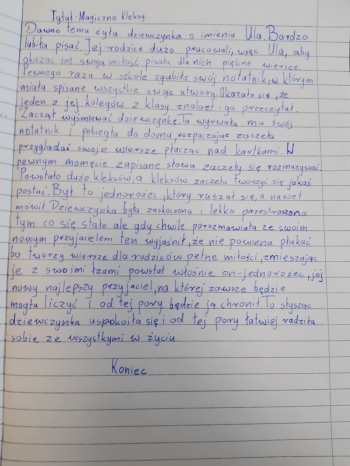 Tytuł Magiczne Kleksy
Dawno temu żyta dziewczynka o imieniu Ula. Bardzo
lubiła pisać. Jej rodzice dużo pracowali, więc Ula, aby
okazać im swoją miłość pisała dla nich piękne wiersze
Pewnego razu w szkole zgubiła swój notatnik, w którym
miała spisane wszystkie swoje utwory. Okazało się, że
jeden z jej kolegów z klasy znalazł i go przeczytał.
Zaczął wyśmiewać dziewczynkę. Ta wyrwała mu swój
notatnik i pobiegła do domu, rozpaczając zaczęła
przyglądać swoje wiersze płacząc nad kartkami. W
pewnym momęcie zapisane słowa zaczęły się rozmazywać.
Powstało dużo kleksów, a kleksów zaczęła tworzyć się jakaś
postać. Był to jednorożec, który ruszał się, a nawet
mówił Dziewczynka była zaskoczona i lekko przestraszona
tym co się stało ale gdy chwile porozmawiała ze swoim
nowym przyjacielem ten wyjaśnił, że nie powinna płakać
bo tworzy wiersze dla rodziców pełne miłości, zmieszając
je z swoimi łzami powstał właśnie on-jednorożec, jej
nowy najlepszy przyjaciel, na której zawsze będzie
mogła liczyć i od tej pory będzie ją chronił To słysząc
dziewczynka uspokoiła się i od tej pory łatwiej radziła
sobie ze wszystkymi w życiu.
Koniec